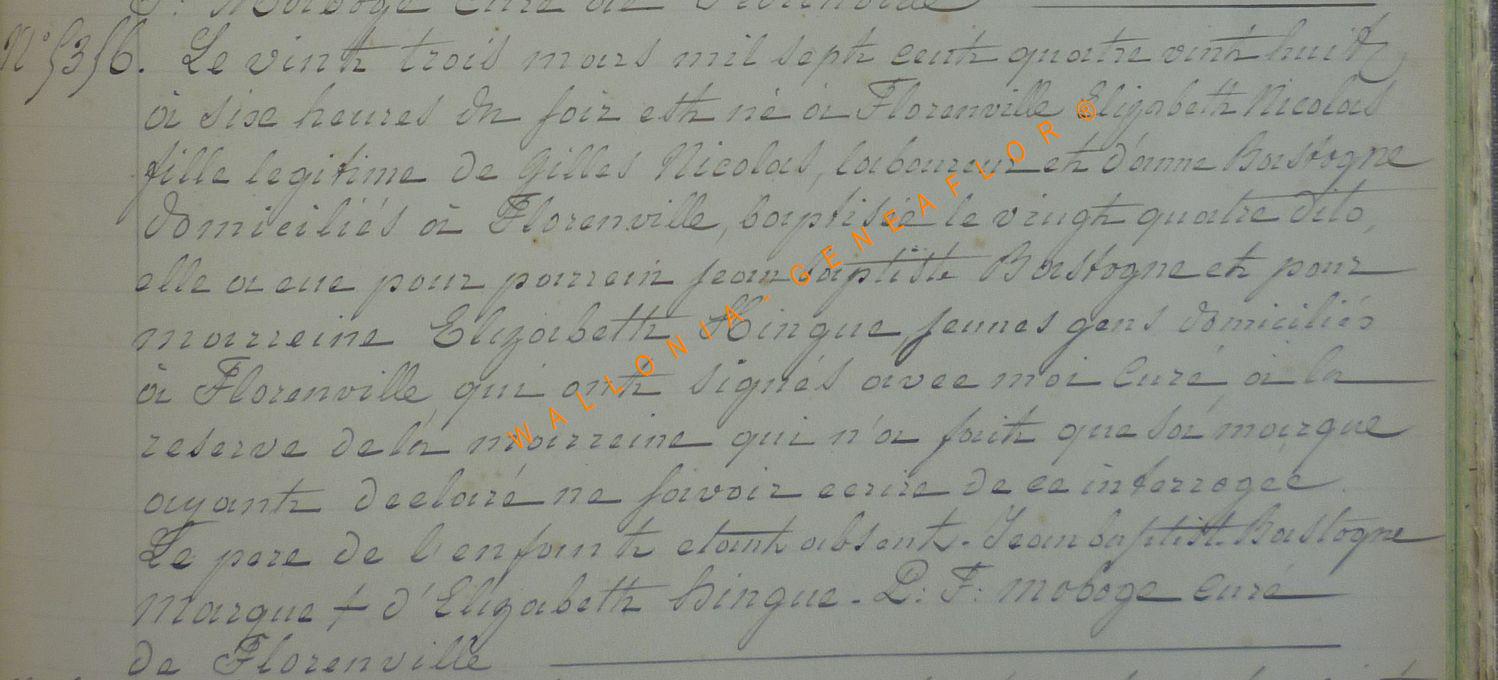 Curé de Florenville
N° 5356. Le vinht trois mars mil sept cent quatre vinht huit
à sixe heures du soir est né à Florenville Elizabeth Nicolas
fille legitime de Gilles Nicolas, laboureur et d'anne Bastogne
domiciliés à Florenville, baptisée le vinght quatre dito,
elle a eue pour parrein jean baptiste Bastogne et pour
marreine Elizabeth Hingue, jeunes gens domiciliés
à Florenville qui ont signés avec moi Curé à la
reserve de la marreine qui n'a fait que sa marque
ayant declaré ne savoir ecrire de ce interrogée.
Le pere de l'enfant etant absent. Jean baptist Bastogne
marque + d'Elizabeth hingue. P: F: moboge Curé
de Florenville
WALLONIA - GENEAFLOR ©